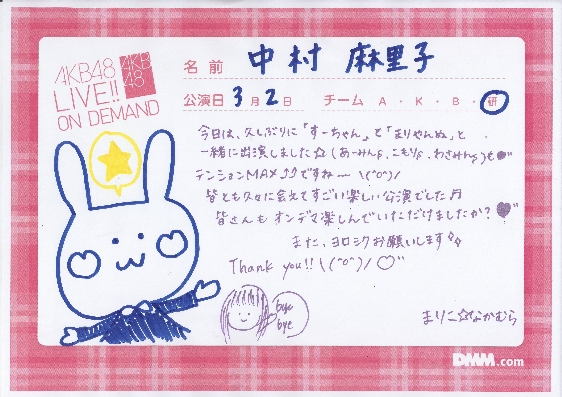 AKB48
LIVE!!
ON DEMAND
AKB
48
名前 中村 麻里子
公演日 3月2日 チーム A・K・B・研
今日は、久しぶりに「すーちゃん」と「まりやんぬ」と
一緒に出演しました☆(あーみん、こもりん、わさみんも♥
テンションMAX⤴⤴ですね〜\(^o^)/
皆とも久々に会えてすごい楽しい公演でした♬
皆さんもオンデマ楽しんでいただけましたか?♥
また、ヨロシクお願いします
Thank you!!\(^o^)/♡
bye
bye
まりこ☆なかむら
DMM.com